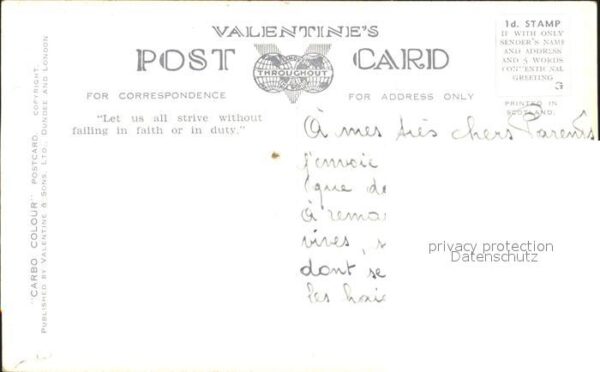 VALENTINE'S
POST CARD
THROUGHOUT
FOR CORRESPONDENCE
FOR ADDRESS ONLY
1d. STAMP
IF WITH ONLY
SENDER'S NAME
AND ADDRESS
AND 5 WORDS
CONVENTIONAL
GREETING
PRINTED IN
SCOTLAND.
"Let us all strive without
failing in faith or in duty."
À mes très chers Parents
J'envoie
que de
À rema
vives, s
dont se
les haie
privacy protection
Datenschutz
"CARBO COLOUR" POSTCARD. COPYRIGHT.
PUBLISHED BY VALENTINE & SONS, LTD., DUNDEE AND LONDON